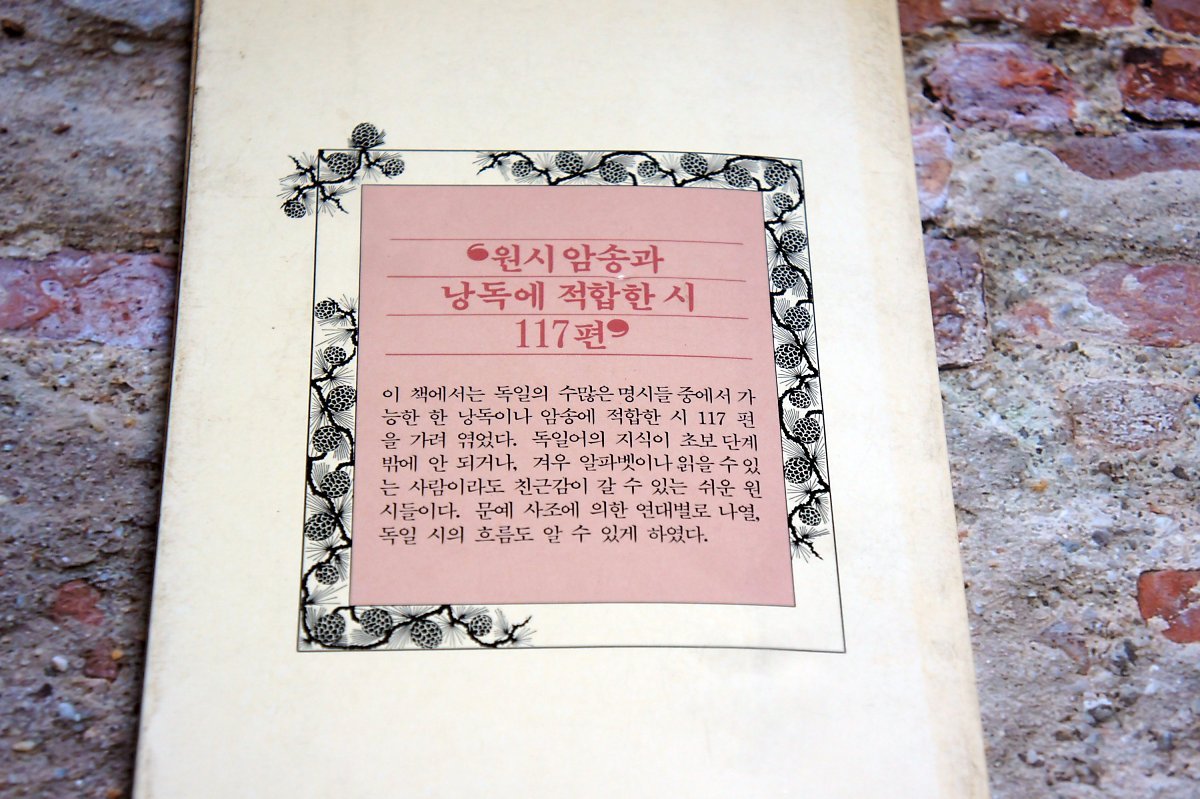 ❛원시 암송과
낭독에 적합한 시
117편❜
이 책에서는 독일의 수많은 명시들 중에서 가
능한 한 낭독이나 암송에 적합한 시 117 편
을 가려 엮었다. 독일어의 지식이 초보 단계
밖에 안 되거나, 겨우 알파벳이나 읽을 수 있
는 사람이라도 친근감이 갈 수 있는 쉬운 원
시들이다. 문예 사조에 의한 연대별로 나열,
독일 시의 흐름도 알 수 있게 하였다.